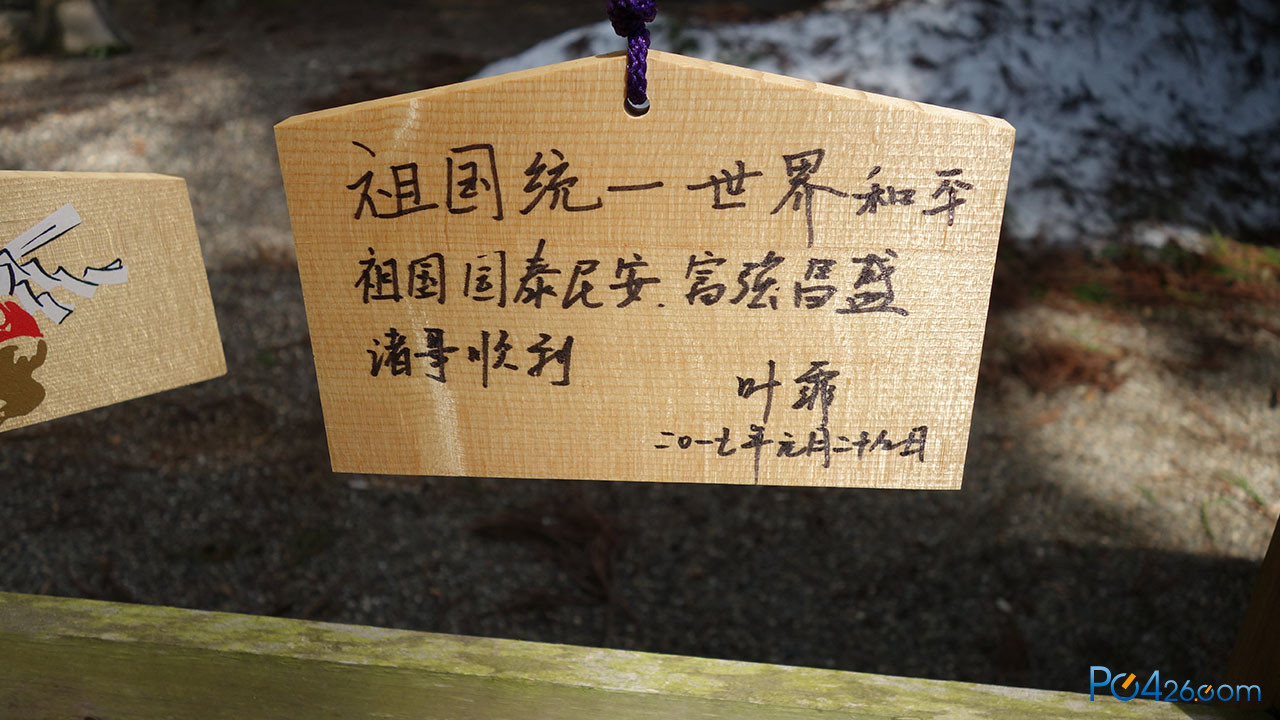 祖国统一 世界和平
祖国国泰民安、富强昌盛
诸事顺利
叶乖
二〇一七年元月二十九日
PC426.com